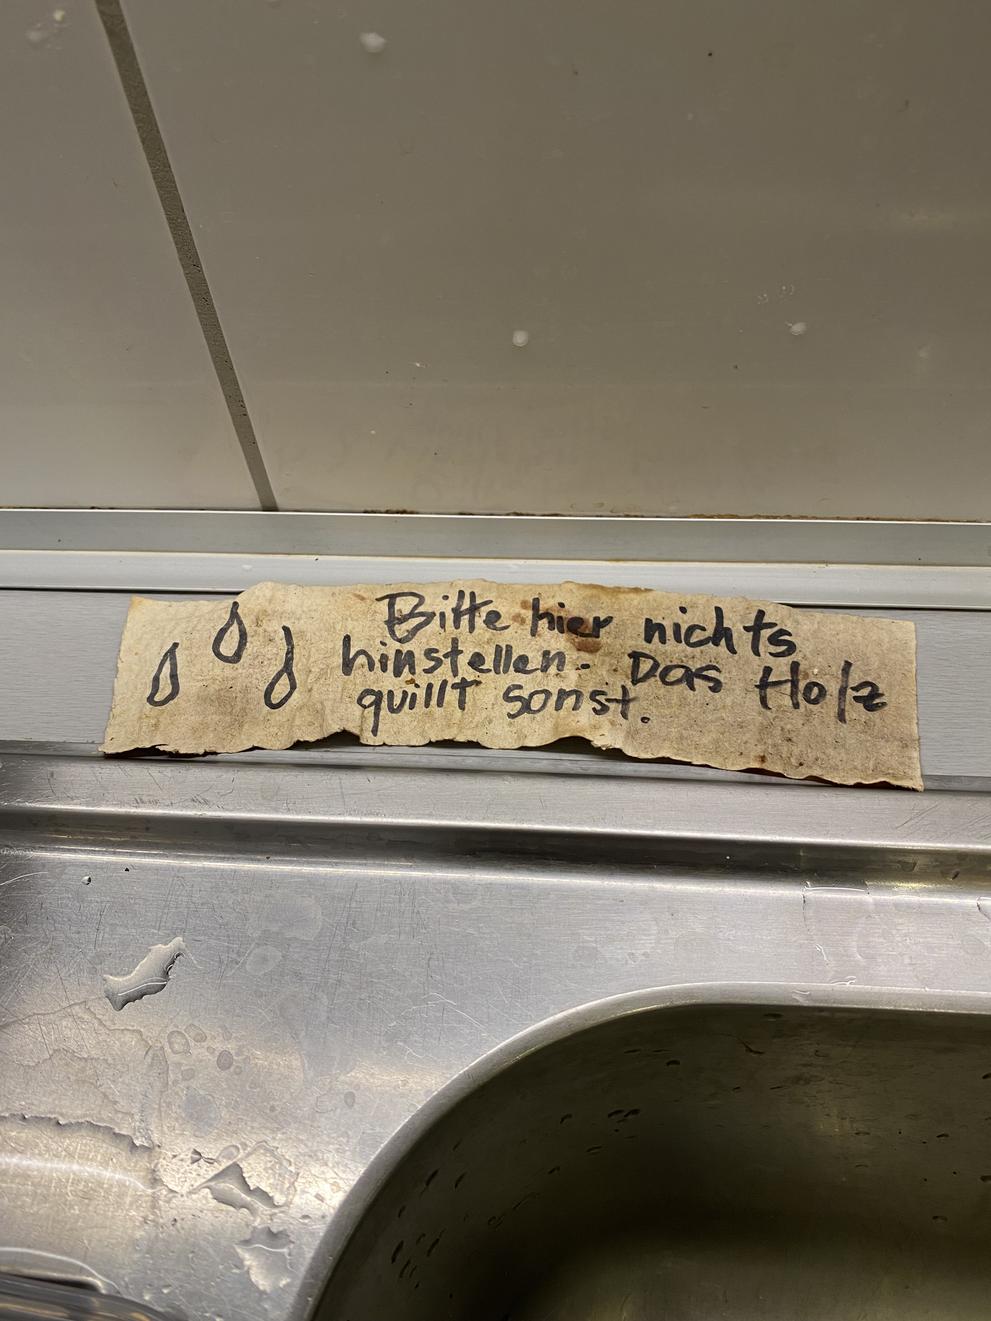 Bitte hier nichts
hinstellen. Das Holz
quillt sonst.